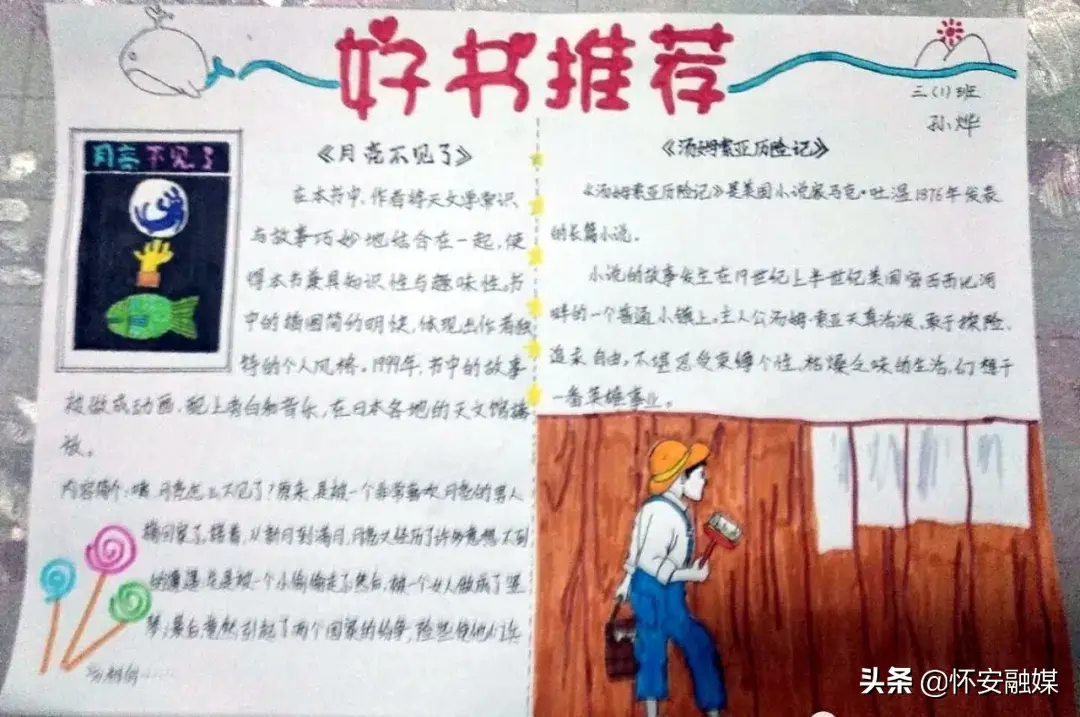 好书推荐
三(1)班
孙烨
月亮不见了
《月亮不见了》
在本书中,作者将天文学常识
与故事巧妙地结合在一起,使
得本书兼具知识性与趣味性。书
中的插图简约明快,体现出作者独
特的个人风格。1999年,书中的故事
被做成动画,配上旁白和音乐,在日本各地的天文馆播
放。
内容简介:咦,月亮怎么不见了?原来是被一个非常喜欢月亮的男人
搬回家了。接着,从新月到满月,月亮又经历了许多意想不到
的遭遇:先是被一个小偷偷走了,然后,被一个女人做成了竖
琴;最后竟然引起了两个国家的纷争,险些使他们
《汤姆索亚历险记》
《汤姆索亚历险记》是美国小说家马克·吐温1876年发表
的长篇小说。
小说的故事发生在19世纪上半世纪美国密西西比河
畔的一个普通小镇上。主人公汤姆·索亚天真活泼、敢于探险、
追求自由,不堪忍受束缚个性、枯燥乏味的生活,幻想干
一番英雄事业。
头条 @怀安融媒